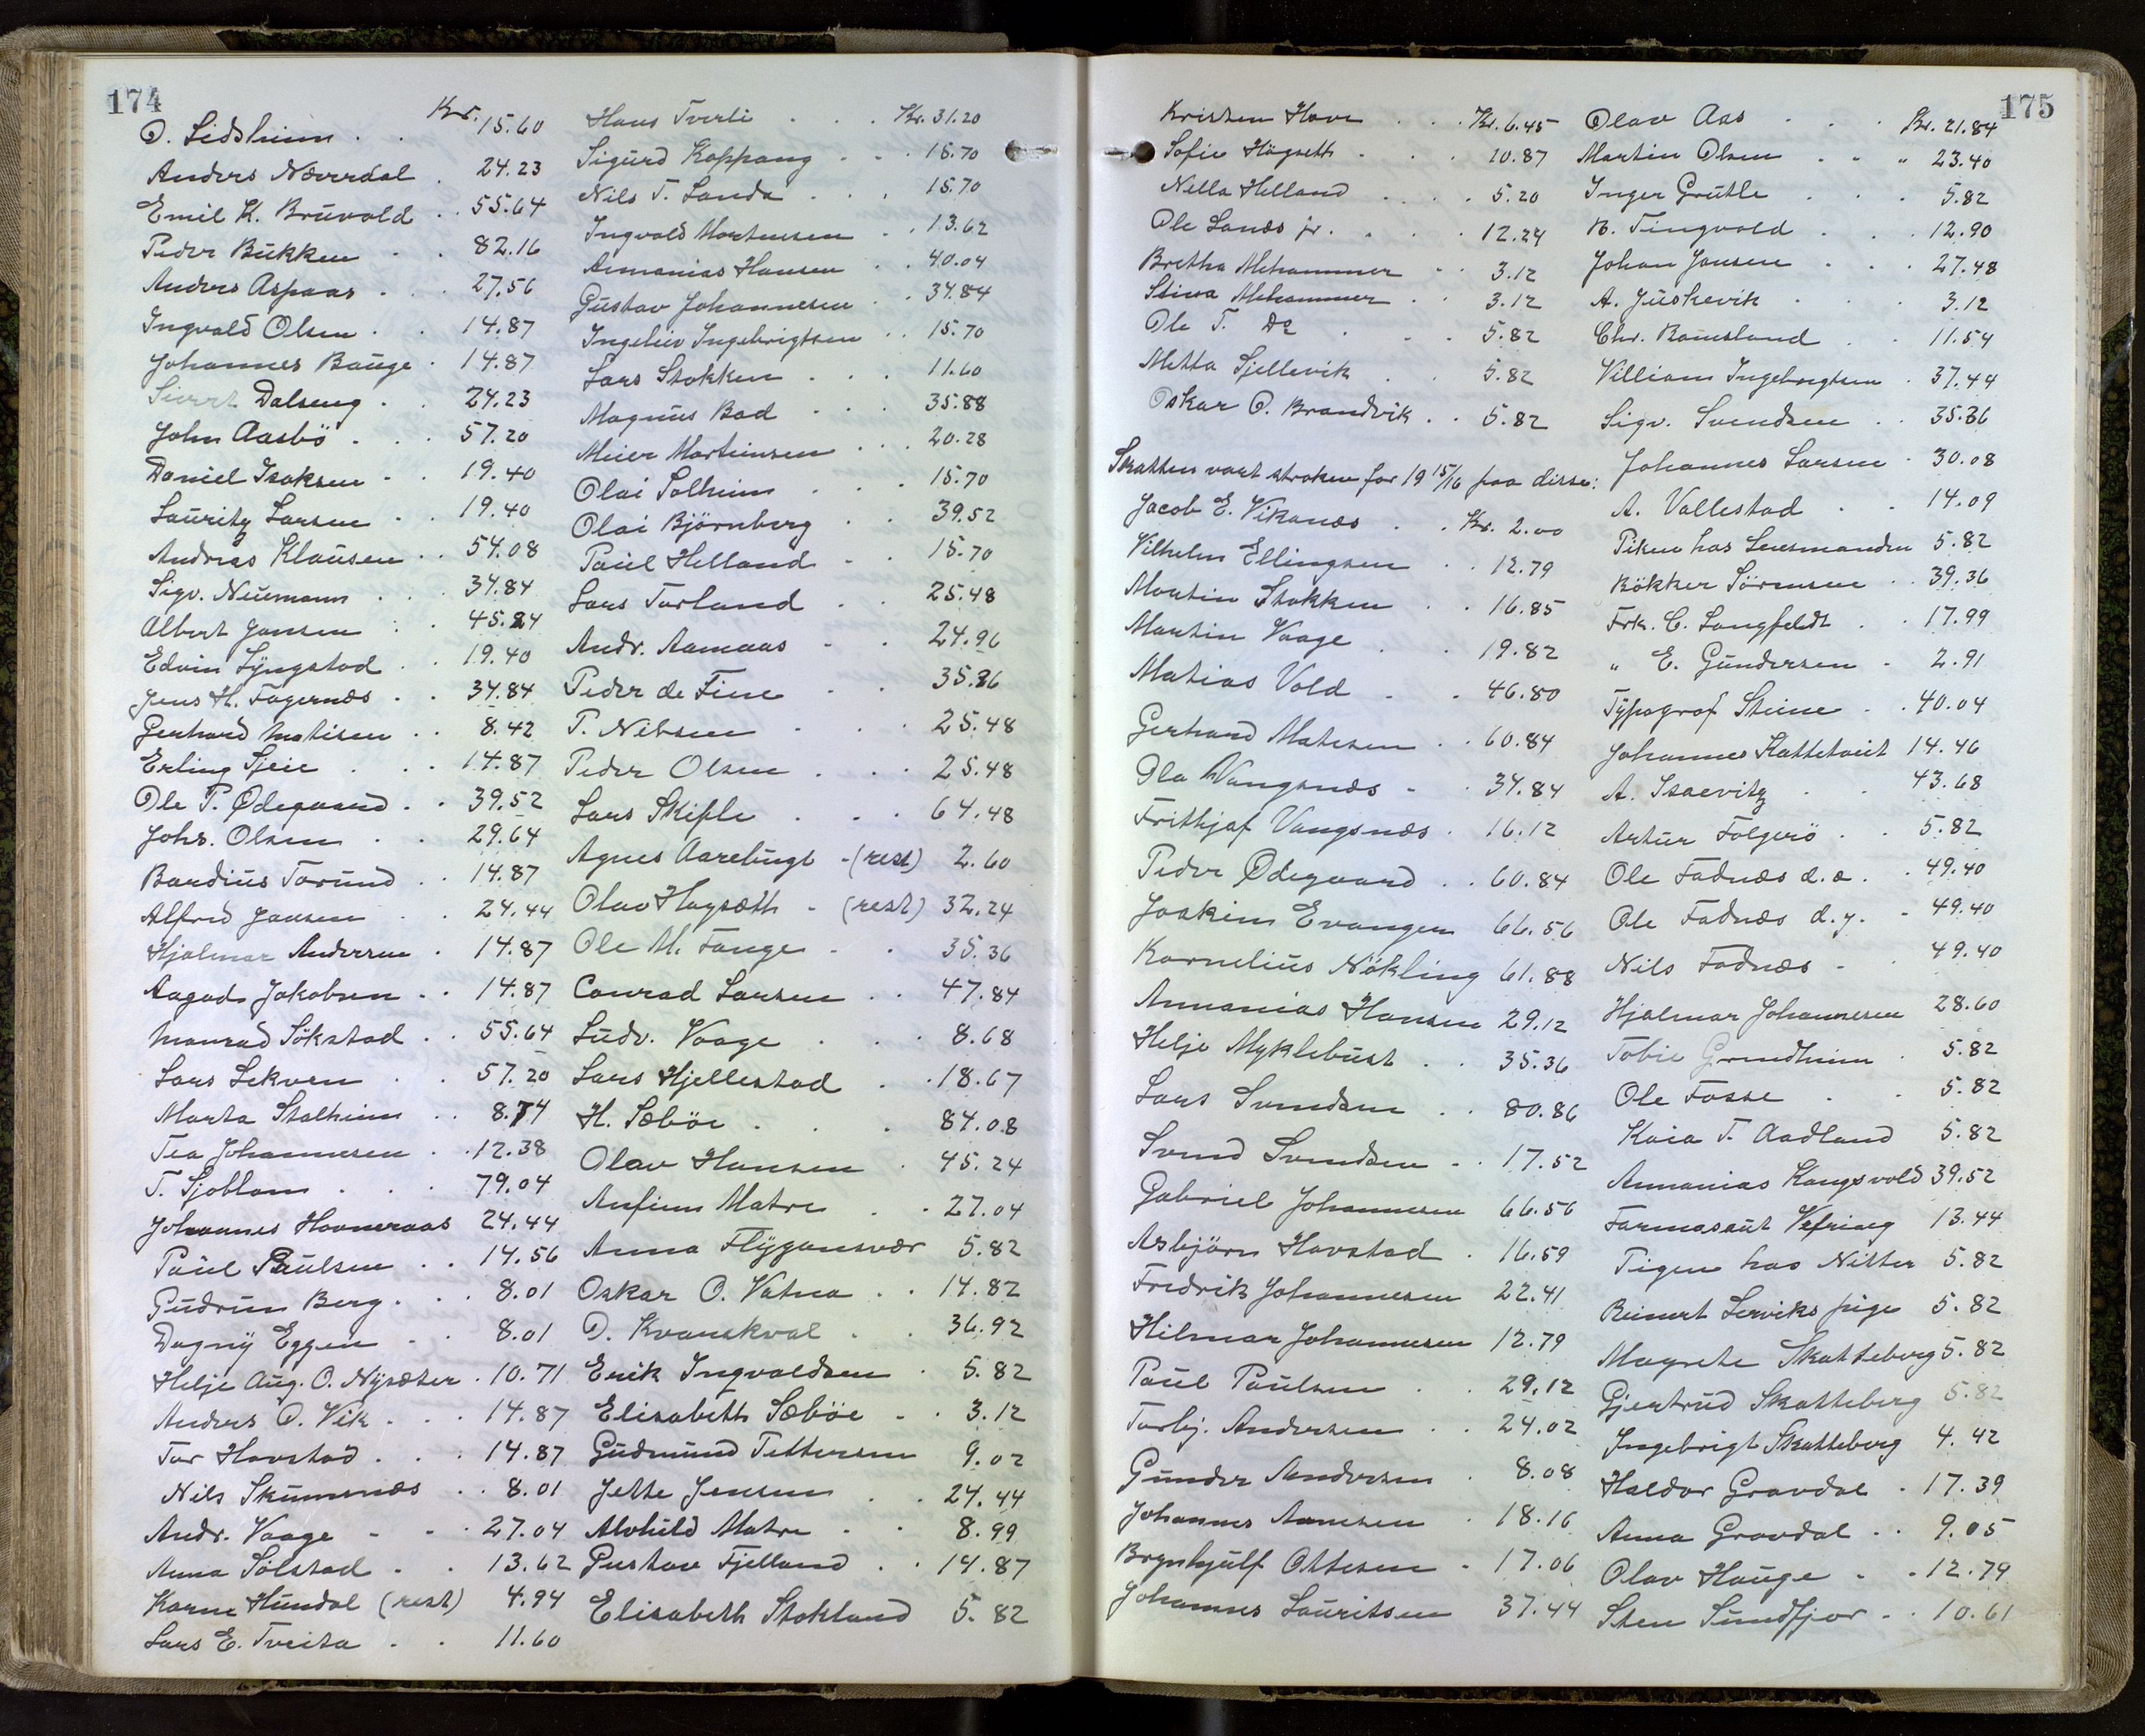 174
O. Lidsheim . . Kr. 15.60
Anders Nærerdal . 24.23
Emil K. Bruvold . . 55.64
Peder Bukken . . 82.16
Anders Aspaas . . . 27.56
Ingvald Olsen . . 14.87
Johannes Bauge . 14.87
Sivert Dalseng . . 24.23
John Aasbö . . . 57.20
Daniel Isaksen . . 19.40
Lauritz Larsen . . 19.40
Andreas Klausen . . 54.08
Sigv. Neumann . . . 34.84
Albert Jansen . . 45.24
Edvin Lyngstad . . 19.40
Jens H. Fagernæs . . 34.84
Gerhard Matisen . . 8.42
Erling Fjeie . . . 14.87
Ole P. Ødegaard . . 39.52
Johs. Olsen . . 29.64
Bardius Torund . . 14.87
Alfred Jansen . . 24.44
Hjalmar Andersen . 14.87
Aagads Jakobsen . . 14.87
Monrad Sökstad . . 55.64
Lars Lekven . . 57.20
Marta Stalheim . . 8.74
Tea Johannesen . . 12.38
T. Sjoblom . . . 79.04
Johannes Hovneraas 24.44
Paul Paulsen . . 14.56
Gudrun Berg . . . 8.01
Dagny Eggen . . 8.01
Helje Aug. O. Nysæter . 10.71
Anders O. Vik . . . 14.87
Tor Havstad . . . 14.87
Nils Skumsnæs . . 8.01
Andr. Vaage - - - 27.04
Anna Solstad . . 13.62
Karne Hundal (rest) 4.94
Lars E. Tveita . . 11.60
Hans Tverli . . . Kr. 31.20
Sigurd Koppang . . . 15.70
Nils T. Landa . . . 15.70
Ingvald Mortensen . . 13.62
Armanias Hansen . . 40.04
Gustav Johannesen . . 34.84
Ingeliev Ingebrigtsen . . 15.70
Lars Stokken . . . 11.60
Magnus Bad . . . 35.88
Meier Martinsen . . . 20.28
Olai Solheim . . . 15.70
Olai Björnberg . . 39.52
Paul Helland . . 15.70
Lars Torland . . 25.48
Andr. Aamaas - - 24.96
Peder de Fine - - 35.36
P. Nilsen . . . 25.48
Peder Olsen . . . 25.48
Lars Skifle . . . 64.48
Agnes Aarebugt - (rest) 2.60
Olav Hagsæth - (rest) 32.24
Ole M. Fange - . 35.36
Conrad Larsen . . 47.84
Ludv. Vaage . . . 8.68
Lars Hjellestad . . 18.67
H. Sæböe . . . 84.08
Olav Hansen . 45.24
Anfinn Matre . . 27.04
Anna Flygansvær 5.82
Oskar O. Vatna . . 14.82
O. Kvanskval . . 36.92
Erik Ingvaldsen . 5.82
Elisabeth Sæböe . . 3.12
Gudmund Pettersen 9.02
Jette Jensen . . 24.44
Alvhild Matre . . 8.99
Gustav Fjelland . . 14.87
Elisabeth Stokland 5.82
175
Kristen Hove . . . Kr. 6.45
Sofie Högseth . . . 10.87
Nella Helland . . . . 5.20
Ole Lanes jr. . . . 12.24
Bretha Mehammer . . 3.12
Stina Mehammer . . 3.12
Ole T. Do . . . 5.82
Metta Sjellevik . . 5.82
Oskar O. Brandvik . . 5.82
Skatten vart stroken for 19 15/16 paa disse:
Jacob E. Vikanes . . Kr. 2.00
Vilhelm Ellingsen . . 12.79
Martin Stokken . . 16.85
Martin Vaage . . 19.82
Matias Vold . . 46.80
Gerhard Matesen . . 60.84
Ola Vangsnæs - . 34.84
Frithjof Vangsnæs . 16.12
Peder Ødegaard . . 60.84
Joakim Evangen 66.56
Kornelius Nökling 61.88
Annanias Hansen 29.12
Helje Myklebust . . 35.36
Lars Svendsen . . 80.86
Svend Svendsen - . 17.52
Gabriel Johannesen 66.56
Asbjörn Havstad . 16.59
Fredrik Johannesen 22.41
Hilmar Johannesen 12.79
Paul Paulsen . . 29.12
Torbj. Andersen . . 24.02
Gunder Andersen . 8.08
Johannes Aamsen . 18.16
Brynhjulf Ottesen - 17.06
Johannes Lauritsen 37.44
Olav Aas . . . Kr. 21.84
Martin Olsen . . " 23.40
Inger Grutle . . . 5.82
B. Tingvold . . . 12.90
Johan Jansen . . . 27.48
A. Juskevik . . . 3.12
Chr. Baunsland . . 11.54
Villiam Ingebrigtsen . 37.44
Sigv. Svendsen . . 35.36
Johannes Larsen . 30.08
A. Vallestad . . 14.09
Piken hos Lensmanden 5.82
Bökker Sörensen . . 39.36
Frk. C. Langfeldt . . 17.99
" E. Gundersen - 2.91
Typograf Steine . . 40.04
Johannes Kattetveit 14.46
A. Isaevitz . . 43.68
Artur Folgerö . . 5.82
Ole Fadnæs d.e. . . 49.40
Ole Fadnæs d.y. . . 49.40
Nils Fadnæs - . 49.40
Hjalmar Johannesen 28.60
Tobie Grindheim . 5.82
Ole Fosse . . 5.82
Kaia T. Aadland 5.82
Annanias Kangsvold 39.52
Farmasaut Vefring 13.44
Pigen hos Nitter 5.82
Reinert Lerviks pige 5.82
Magrete Skatteberg 5.82
Gjertrud Skatteberg 5.82
Ingebrigt Skatteberg 4.42
Haldor Gravdal . 17.39
Anna Gravdal . . 9.05
Olav Hauge . . 12.79
Sten Sundfjor - . 10.61